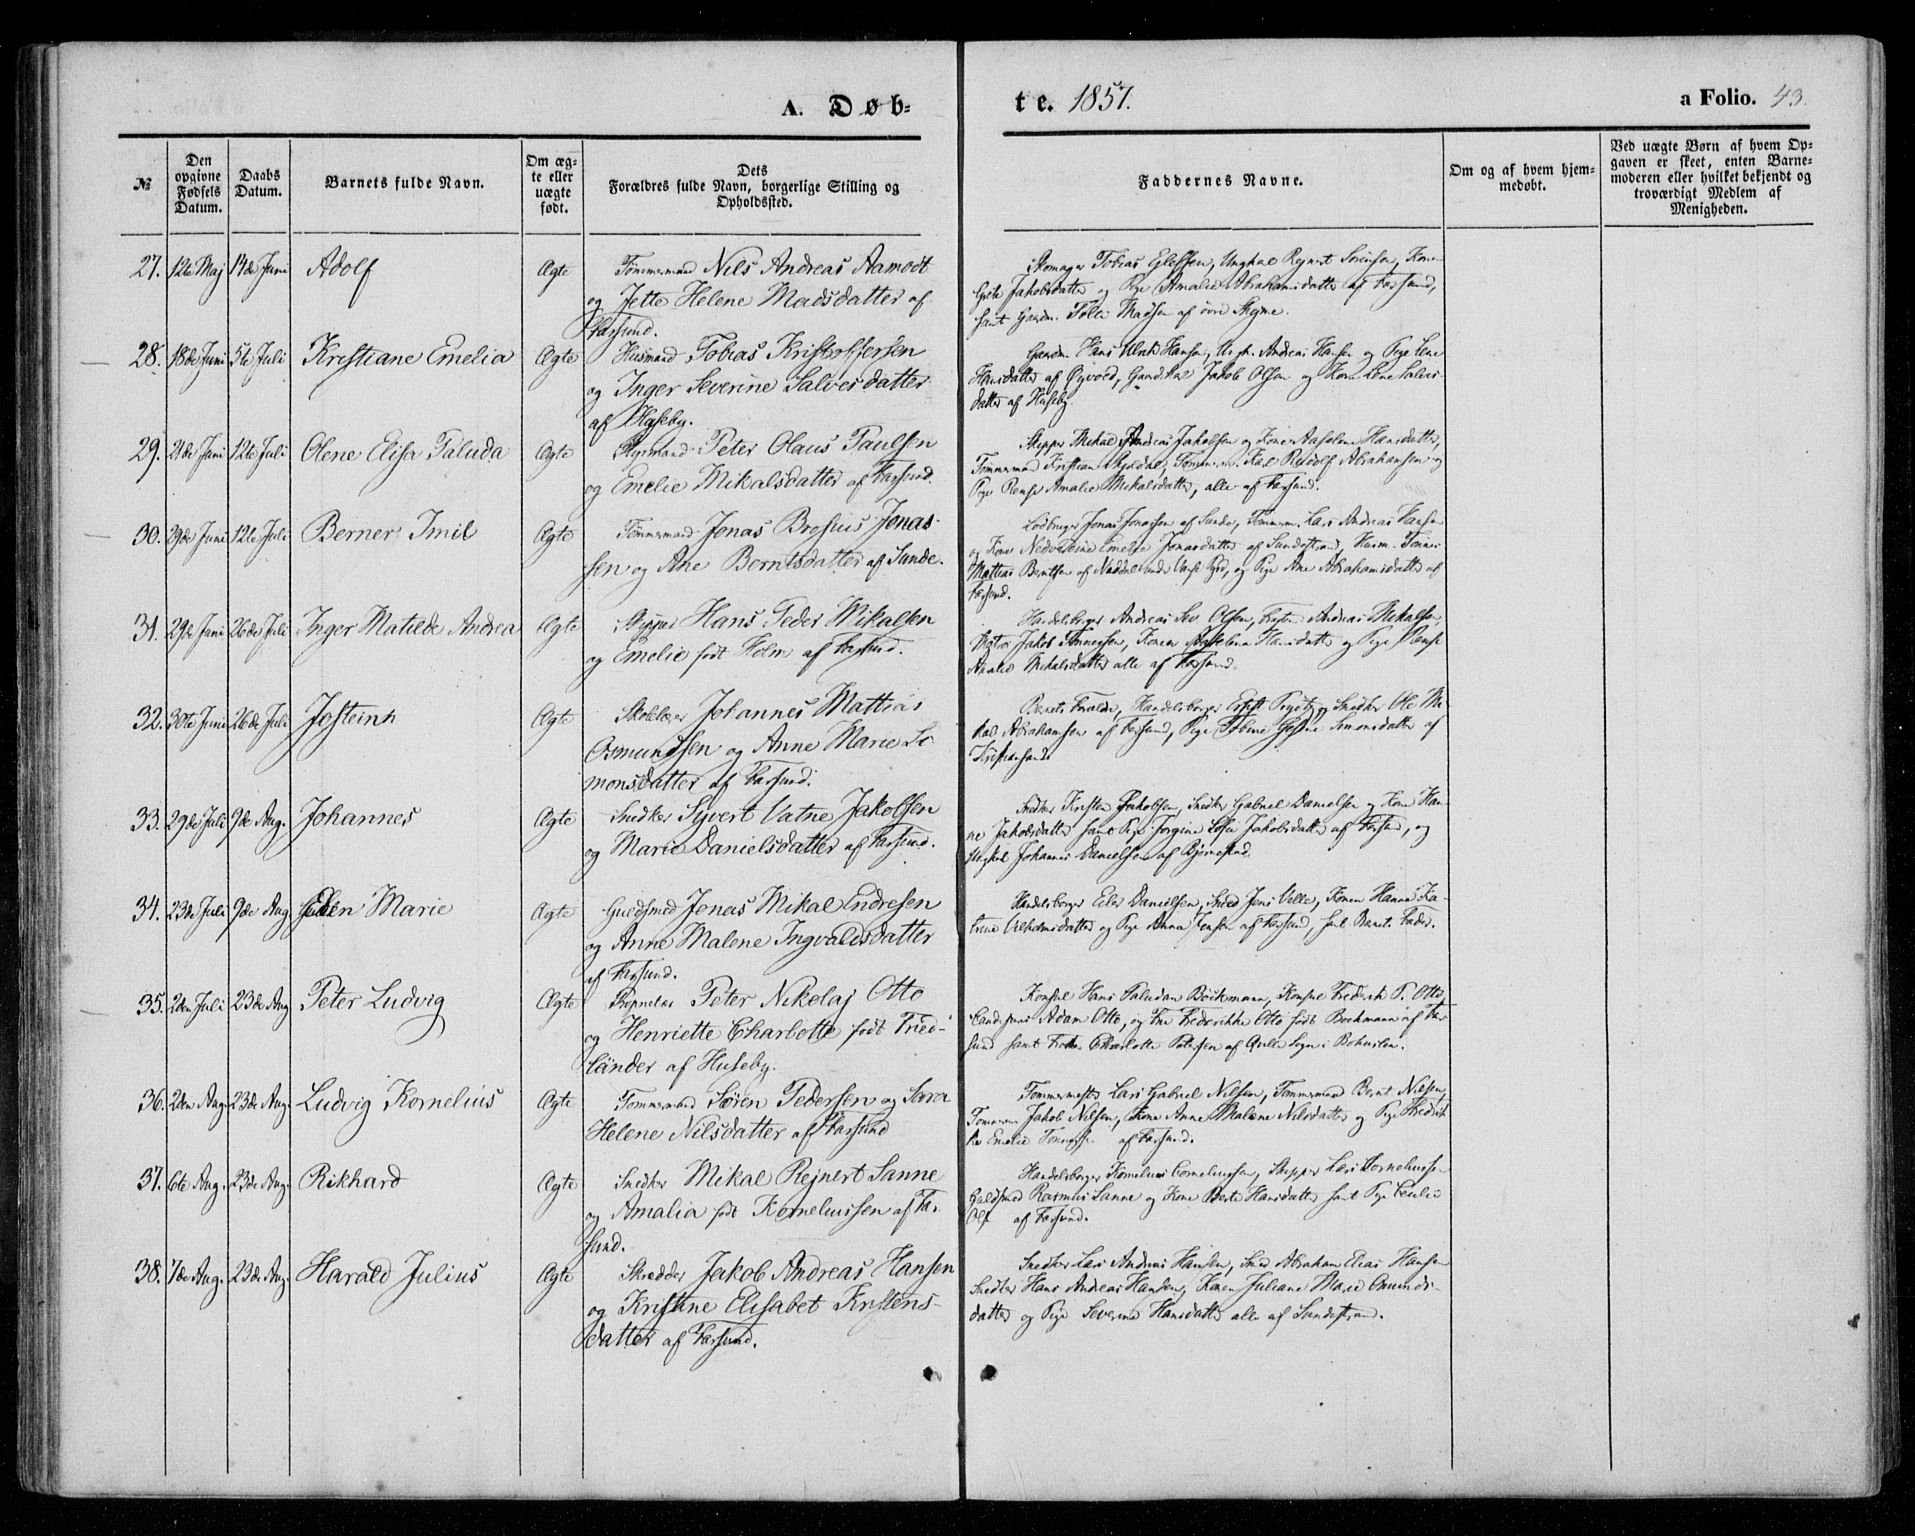 A. Døb-
te. 1857.
a Folio. 43.
№
Den opgivne Fødsels Datum.
Daabs Datum.
Barnets fulde Navn.
Om ægte eller uægte født.
Dets Forældres fulde Navn, borgerlige Stilling og Opholdssted.
Faddernes Navne.
Om og af hvem hjemmedøbt.
Ved uægte Børn af hvem Opgaven er skeet, enten Barnemoderen eller hvilket bekjendt og troværdigt Medlem af Menigheden.
27. 12te Maj 14de Juni Adolf Ægte Tømmermand Nils Andreas Aamodt
og Jette Helene Madsdatter af
Farsund.
Skomager Tobias, Ungkal Sørensen, Kone
Jakobsdatter og Pige Amalie Abrahamsdatter af Farsund,
samt Gaardm. Madsen af øvre
28. 18de Juni 5te Juli Kristiane Emelia Ægte Husmand Tobias Kristoffersen
og Inger Severine Salvesdatter
af Huseby.
Gaardm. Hans Ulrik Hansen, Andreas Hansen og Pige Lene
Hansdatter af, Jakob Olsen og Kone Lene Salves-
datter af Huseby.
29. 21de Juni 12te Juli Olene Elisa Paluda Ægte Styrmand Peter Olaus Paulsen
og Emelie Mikalsdatter af Farsund.
Skipper Mikal Andreas Jakobsen og Kone Hansdatter,
Tømmermand Kristian, Tømmerm. Karl Rudolf Abrahamsen og
Pige Amalie Mikalsdatter, alle af Farsund.
30. 29de Juni 12te Juli Berner Imil Ægte Tømmermand Jonas Brosius Jonas-
sen og Ane Berntsdatter af Sunde.
Jonas Jonassen af Sunde, Tømmerm. Lars Andreas Hansen
og Kone Emelie Jonasdatter af Sundestrand, Husm.
Mattias Berntsen af, og Pige Ane Abrahamsdatter af
Farsund.
31. 29de Juni 26de Juli Inger Matilde Andrea Ægte Skipper Hans Peder Mikalsen
og Emelie født Holm af Farsund.
Handelsborger Andreas Sev. Olsen, Andreas Mekalsen,
Jakob Tønnessen, Konen Hansdatter og Pige
Amalie Mekalsdatter alle af Farsund.
32. 30te Juni 26de Juli Josteinh Ægte Skolelærer Johannes Mattias
Osmundsen og Anne Marie Si-
monsdatter af Farsund.
Barnets Forældre, Handelsborger, Snedker Ole Mi-
kal Abrahamsen af Farsund, Pige Simonsdatter af
Kristiansand.
33. 29de Juli 9de Aug. Johannes Ægte Snedker Syvert Vatne Jakobsen
og Marie Danielsdatter af Farsund.
Snedker Kristen Jakobsen, Snedker Gabriel Danielsen og Kone Han-
ne Jakobsdatter samt Pige Jorgine Jakobsdatter af Farsund, og
Ungkal Johannes Danielsen af
34. 23de Juli 9de Aug. Ellen Marie Ægte Guldsmed Jonas Mikal Endresen
og Anne Malene Ingvaldsdatter
af Farsund.
Handelsborger Danielsen, Smed Jens Velle, Konen Hanna Ka-
trine Vilhelmsdatter og Pige Anna Jensen af Farsund, samt Barnets Fader.
35. 2den Juli 23de Aug. Peter Ludvig Ægte Peter Nikolaj Otto
og Henriette Charlotte født Fried-
länder af Huseby.
Konsul Hans Paludan Bockmann, Konsul Frederik P. Otto,
Adam Otto, og Frue Frederikke Otto født Bockmann af Far-
sund samt Frøken Charlotte Petersen af Sogn i
36. 2den Aug. 23de Aug. Ludvig Kornelius Ægte Tømmermand Søren Pedersen og Sara
Helene Nilsdatter af Farsund
Lars Gabriel Nilsen, Tømmermand Bernt Nilsen,
Tømmerm. Jakob Nilsen, Kone Anne Malene Nilsdatter og Pige Fredrik-
ke Emelie af Farsund.
37. 6te Aug. 23de Aug. Rikhard Ægte Snedker Mikal Rejnert Sanne
og Amalia født Korneliussen af Far-
sund.
Handelsborger Kornelius Corneliussen, Skipper Lars Corneliussen
Guldsmed Rasmus Sanne og Kone Berte Hansdatter samt Pige
af Farsund.
38. 7de Aug. 23de Aug. Harald Julius Ægte Skrædder Jakob Andreas Hansen
og Kristine Elisabet Kristens-
datter af Farsund.
Snedker Lars Andreas Hansen, Smed Abraham Elias Hansen
Snedker Hans Andreas Hansen, Konen Juliane Marie Omunds-
datter og Pige Severine Hansdatter alle af Sundestrand.